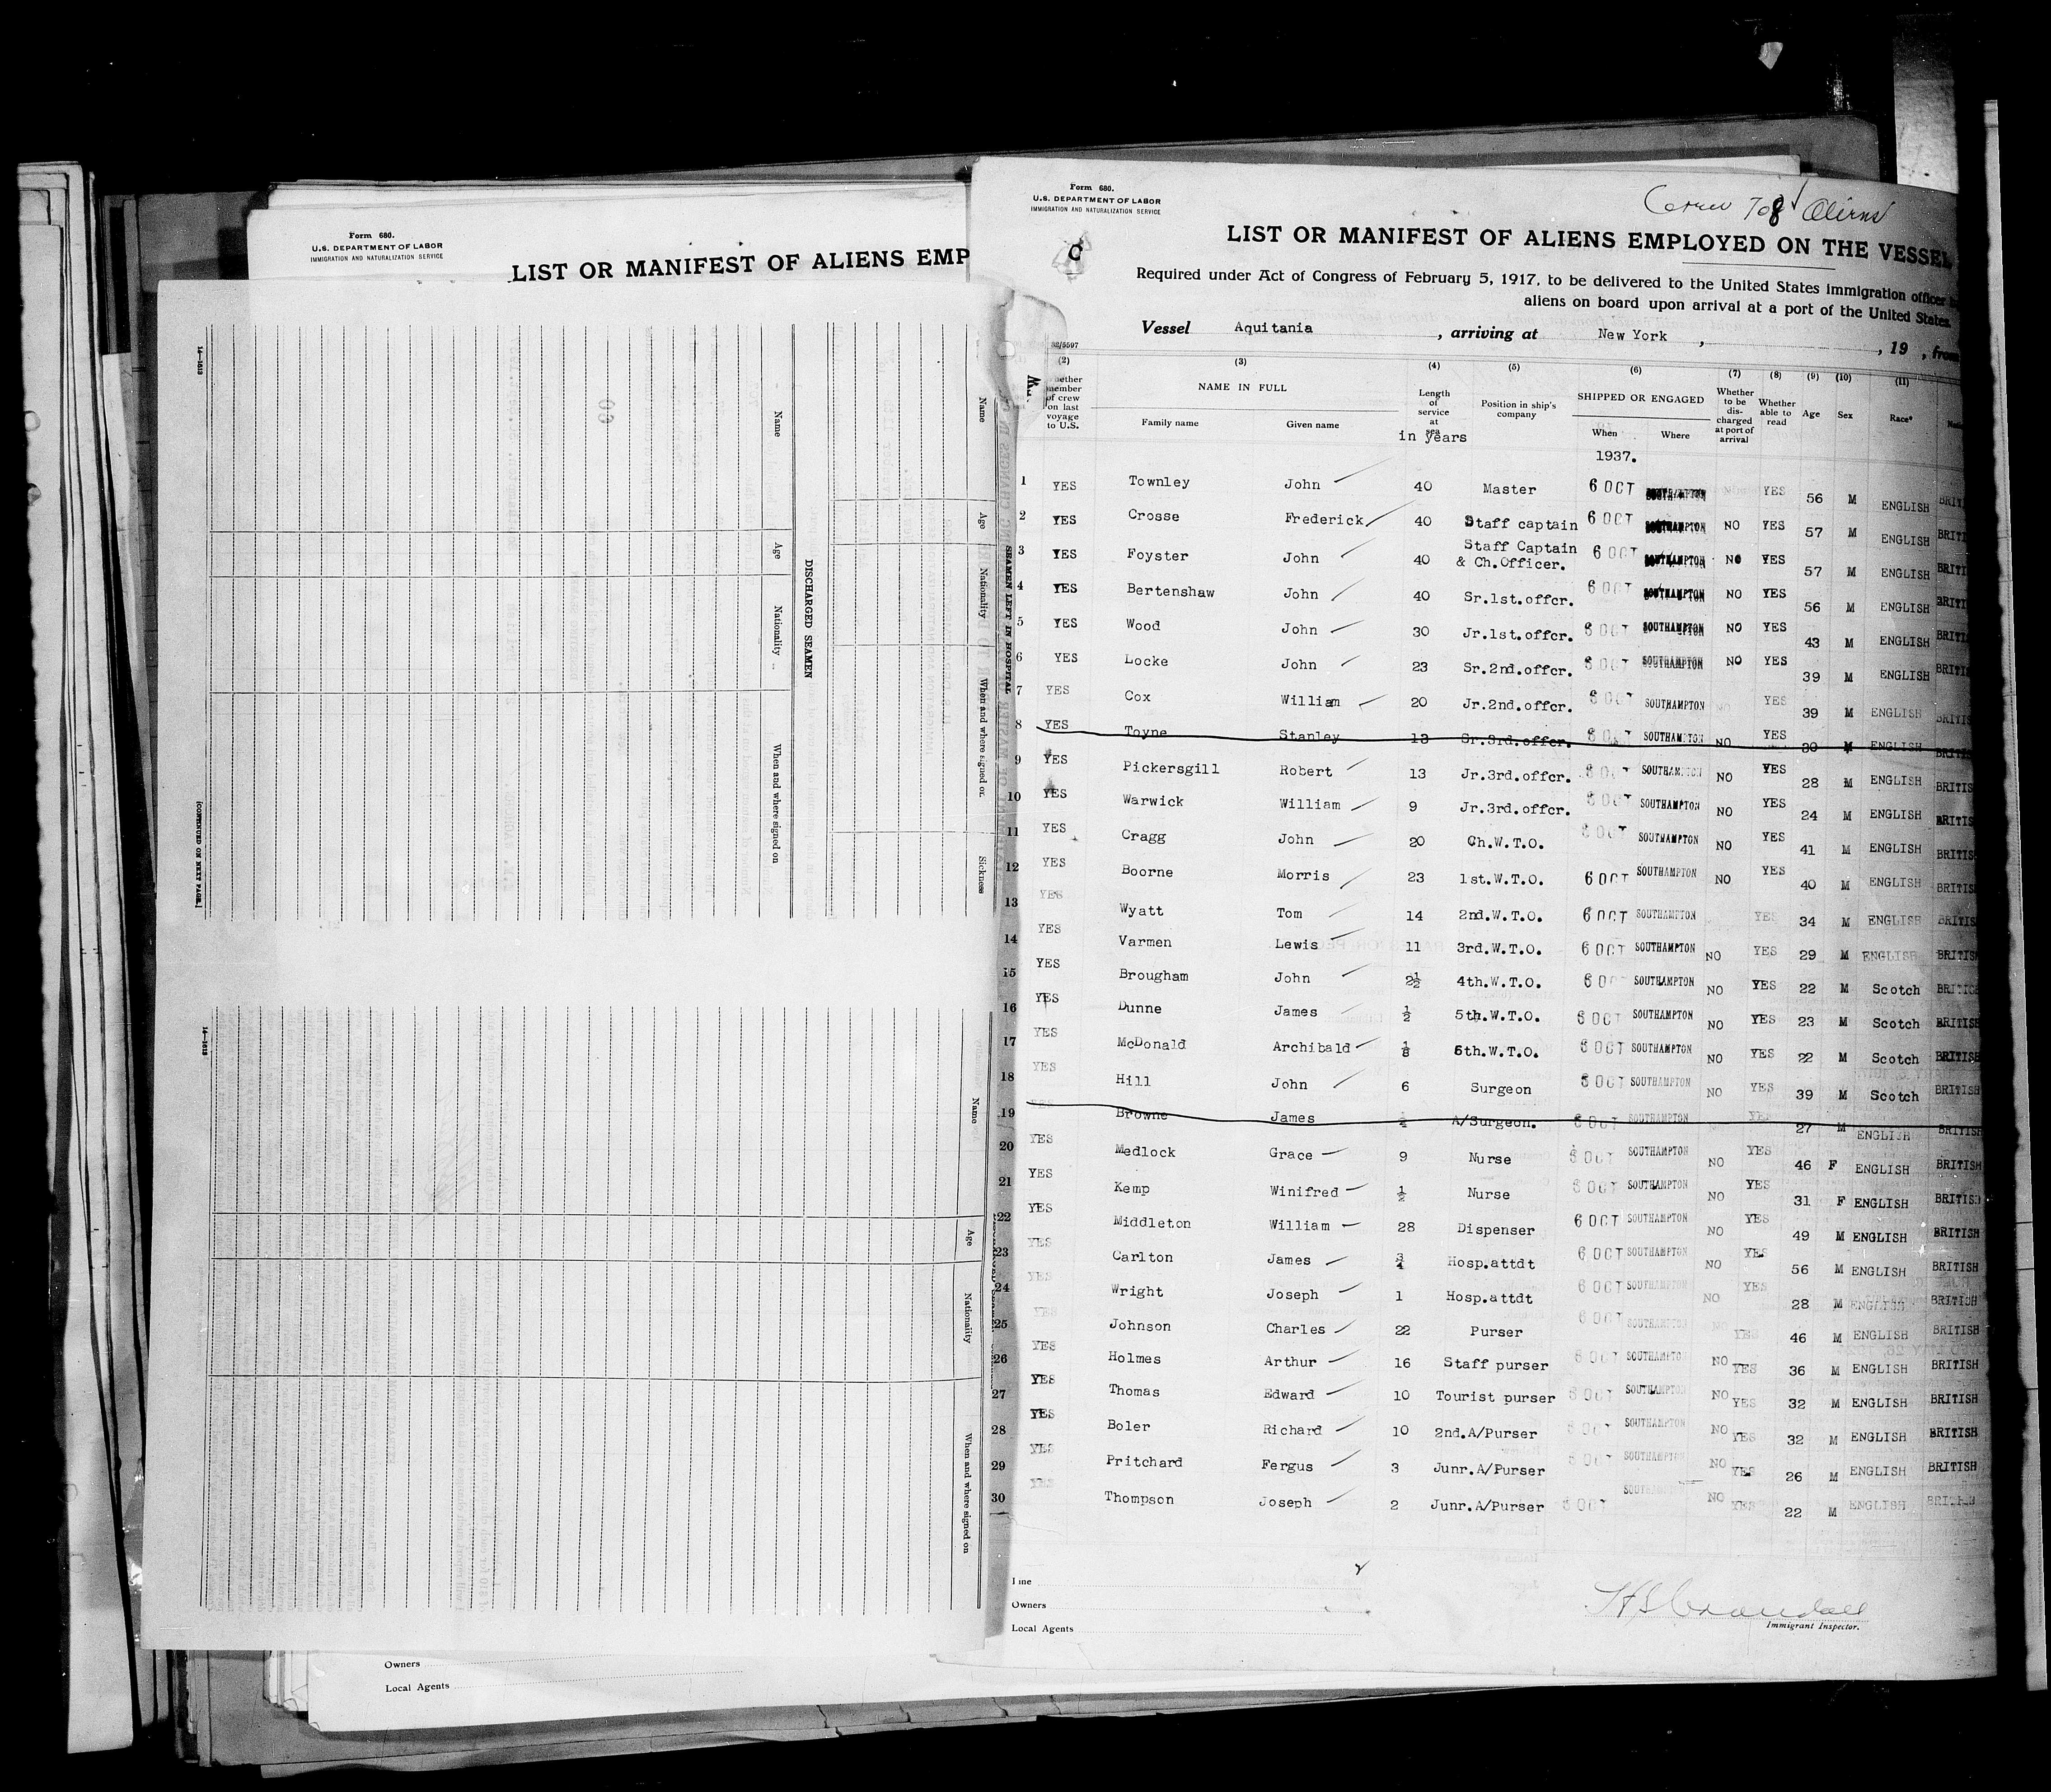 Form 680.
U.S. DEPARTMENT OF LABOR
IMMIGRATION AND NATURALIZATION SERVICE
LIST OR MANIFEST OF ALIENS EMP
14—1613
[CONTINUED ON NEXT PAGE.]
60
Name
Age
Nationality
When and where signed on
DISCHARGED SEAMEN
Name
Age
Nationality
When and where signed on
Sickness
SEAMEN LEFT IN HOSPITAL
14—1613
Name
Age
Nationality
When and where signed on
Owners
Local Agents
Form 680.
U.S. DEPARTMENT OF LABOR
IMMIGRATION AND NATURALIZATION SERVICE
Crew 708 Aliens
C
LIST OR MANIFEST OF ALIENS EMPLOYED ON THE VESSEL
Required under Act of Congress of February 5, 1917, to be delivered to the United States immigration officer
aliens on board upon arrival at a port of the United States.
Vessel Aquitania , arriving at New York , , 19 , from
32/5597
(2) (3) (4) (5) (6) (7) (8) (9) (10) (11)
hether member of crew on last voyage to U.S. NAME IN FULL Family name Given name Length of service at sea in years Position in ship's company SHIPPED OR ENGAGED When Where Whether to be discharged at port of arrival Whether able to read Age Sex Race*
1937.
1 YES Townley John 40 Master 6 OCT SOUTHAMPTON YES 56 M ENGLISH BRITI
2 YES Crosse Frederick 40 Staff captain 6 OCT SOUTHAMPTON NO YES 57 M ENGLISH BRITI
3 YES Foyster John 40 Staff Captain & Ch.Officer. 6 OCT SOUTHAMPTON NO YES 57 M ENGLISH BRITI
4 YES Bertenshaw John 40 Sr.1st.offcr. 6 OCT SOUTHAMPTON NO YES 56 M ENGLISH BRITI
5 YES Wood John 30 Jr.1st.offcr. 6 OCT SOUTHAMPTON NO YES 43 M ENGLISH BRITI
6 YES Locke John 23 Sr.2nd.offcr. 6 OCT SOUTHAMPTON NO YES 39 M ENGLISH BRITI
7 YES Cox William 20 Jr.2nd.offcr. 6 OCT SOUTHAMPTON NO YES 39 M ENGLISH BRITIS
8 YES Toyne Stanley 13 Sr.3rd.offcr. 6 OCT SOUTHAMPTON NO YES 30 M ENGLISH BRITIS
9 YES Pickersgill Robert 13 Jr.3rd.offcr. 6 OCT SOUTHAMPTON NO YES 28 M ENGLISH BRITIS
10 YES Warwick William 9 Jr.3rd.offcr. 6 OCT SOUTHAMPTON NO YES 24 M ENGLISH BRITIS
11 YES Cragg John 20 Ch.W.T.O. 6 OCT SOUTHAMPTON NO YES 41 M ENGLISH BRITIS
12 YES Boorne Morris 23 1st.W.T.O. 6 OCT SOUTHAMPTON NO YES 40 M ENGLISH BRITIS
13 YES Wyatt Tom 14 2nd.W.T.O. 6 OCT SOUTHAMPTON YES 34 M ENGLISH BRITIS
14 YES Varmen Lewis 11 3rd.W.T.O. 6 OCT SOUTHAMPTON NO YES 29 M ENGLISH BRITIS
15 YES Brougham John 2½ 4th.W.T.O. 6 OCT SOUTHAMPTON NO YES 22 M Scotch BRITIS
16 YES Dunne James ½ 5th.W.T.O. 6 OCT SOUTHAMPTON NO YES 23 M Scotch BRITISH
17 YES McDonald Archibald ⅛ 6th.W.T.O. 6 OCT SOUTHAMPTON NO YES 22 M Scotch BRITISH
18 YES Hill John 6 Surgeon 6 OCT SOUTHAMPTON NO YES 39 M Scotch BRITISH
19 YES Browne James ½ A/Surgeon. 6 OCT SOUTHAMPTON YES 27 M ENGLISH BRITISH
20 YES Medlock Grace 9 Nurse 6 OCT SOUTHAMPTON NO YES 46 F ENGLISH BRITISH
21 YES Kemp Winifred ½ Nurse 6 OCT SOUTHAMPTON NO YES 31 F ENGLISH BRITISH
22 YES Middleton William 28 Dispenser 6 OCT SOUTHAMPTON NO YES 49 M ENGLISH BRITISH
23 YES Carlton James ¾ Hosp.attdt 6 OCT SOUTHAMPTON NO YES 56 M ENGLISH BRITISH
24 YES Wright Joseph 1 Hosp.attdt 6 OCT SOUTHAMPTON NO YES 28 M ENGLISH BRITISH
25 YES Johnson Charles 22 Purser 6 OCT SOUTHAMPTON NO YES 46 M ENGLISH BRITISH
26 YES Holmes Arthur 16 Staff purser 6 OCT SOUTHAMPTON NO YES 36 M ENGLISH BRITISH
27 YES Thomas Edward 10 Tourist purser 6 OCT SOUTHAMPTON NO YES 32 M ENGLISH BRITISH
28 YES Boler Richard 10 2nd.A/Purser 6 OCT SOUTHAMPTON NO YES 32 M ENGLISH BRITISH
29 YES Pritchard Fergus 3 Junr.A/Purser 6 OCT SOUTHAMPTON NO YES 26 M ENGLISH BRITISH
30 YES Thompson Joseph 2 Junr.A/Purser 6 OCT SOUTHAMPTON NO YES 22 M ENGLISH BRITISH
Line
Owners
Local Agents
H S Crandall
Immigrant Inspector.